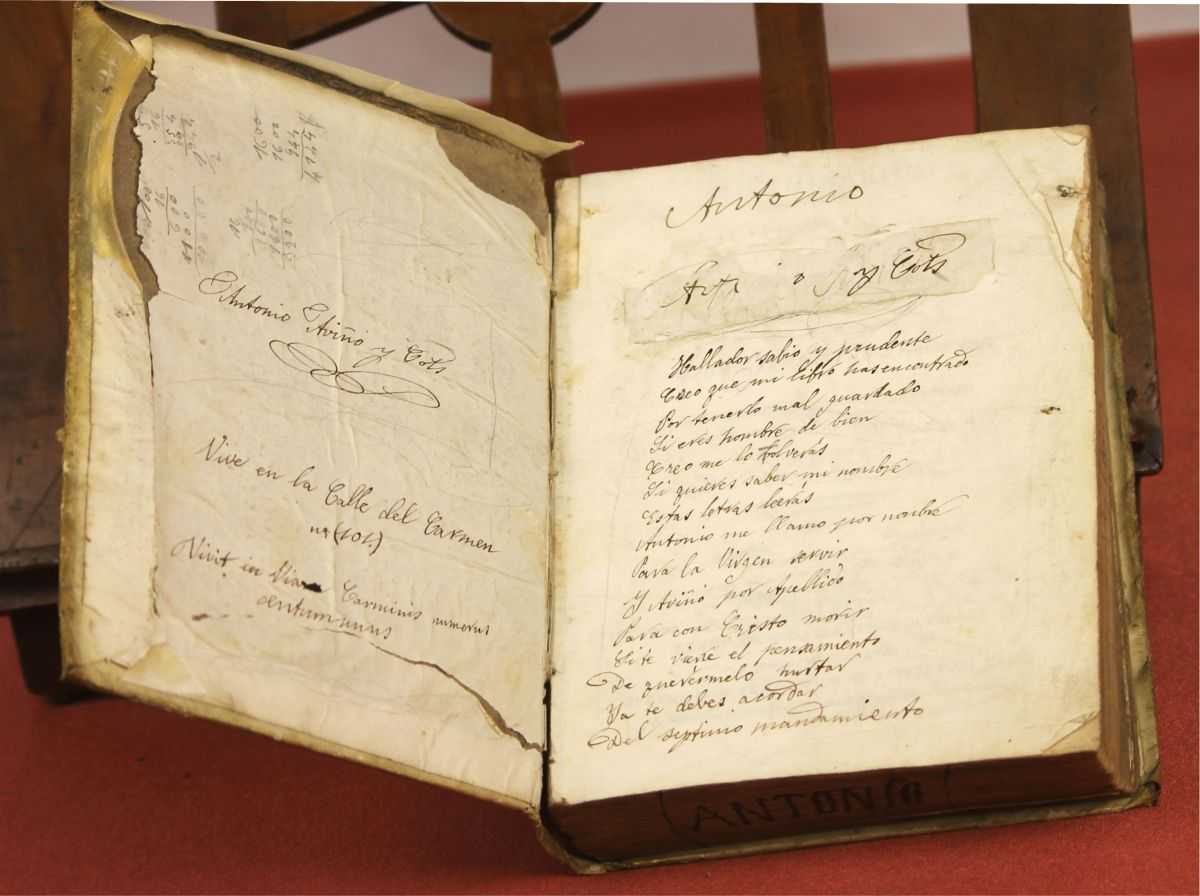 Antonio Aviño y Cots
Vive en la Calle del Carmen
nº (101)
Vivit in Via Carminis numerus
centumunus
Antonio
y Cots
Hallador sabio y prudente
Creo que mi libro has encontrado
Por tenerlo mal guardado
Si eres hombre de bien
Creo me lo volverás
Si quieres saber mi nombre
Estas letras leerás
Antonio me llamo por nonbre
Para la Virgen servir
Y Aviño por Apellido
Para con Cristo morir
Si te viene el pensamiento
De querérmelo hurtar
Ya te debes acordar
Del septimo mandamiento
ANTONIO